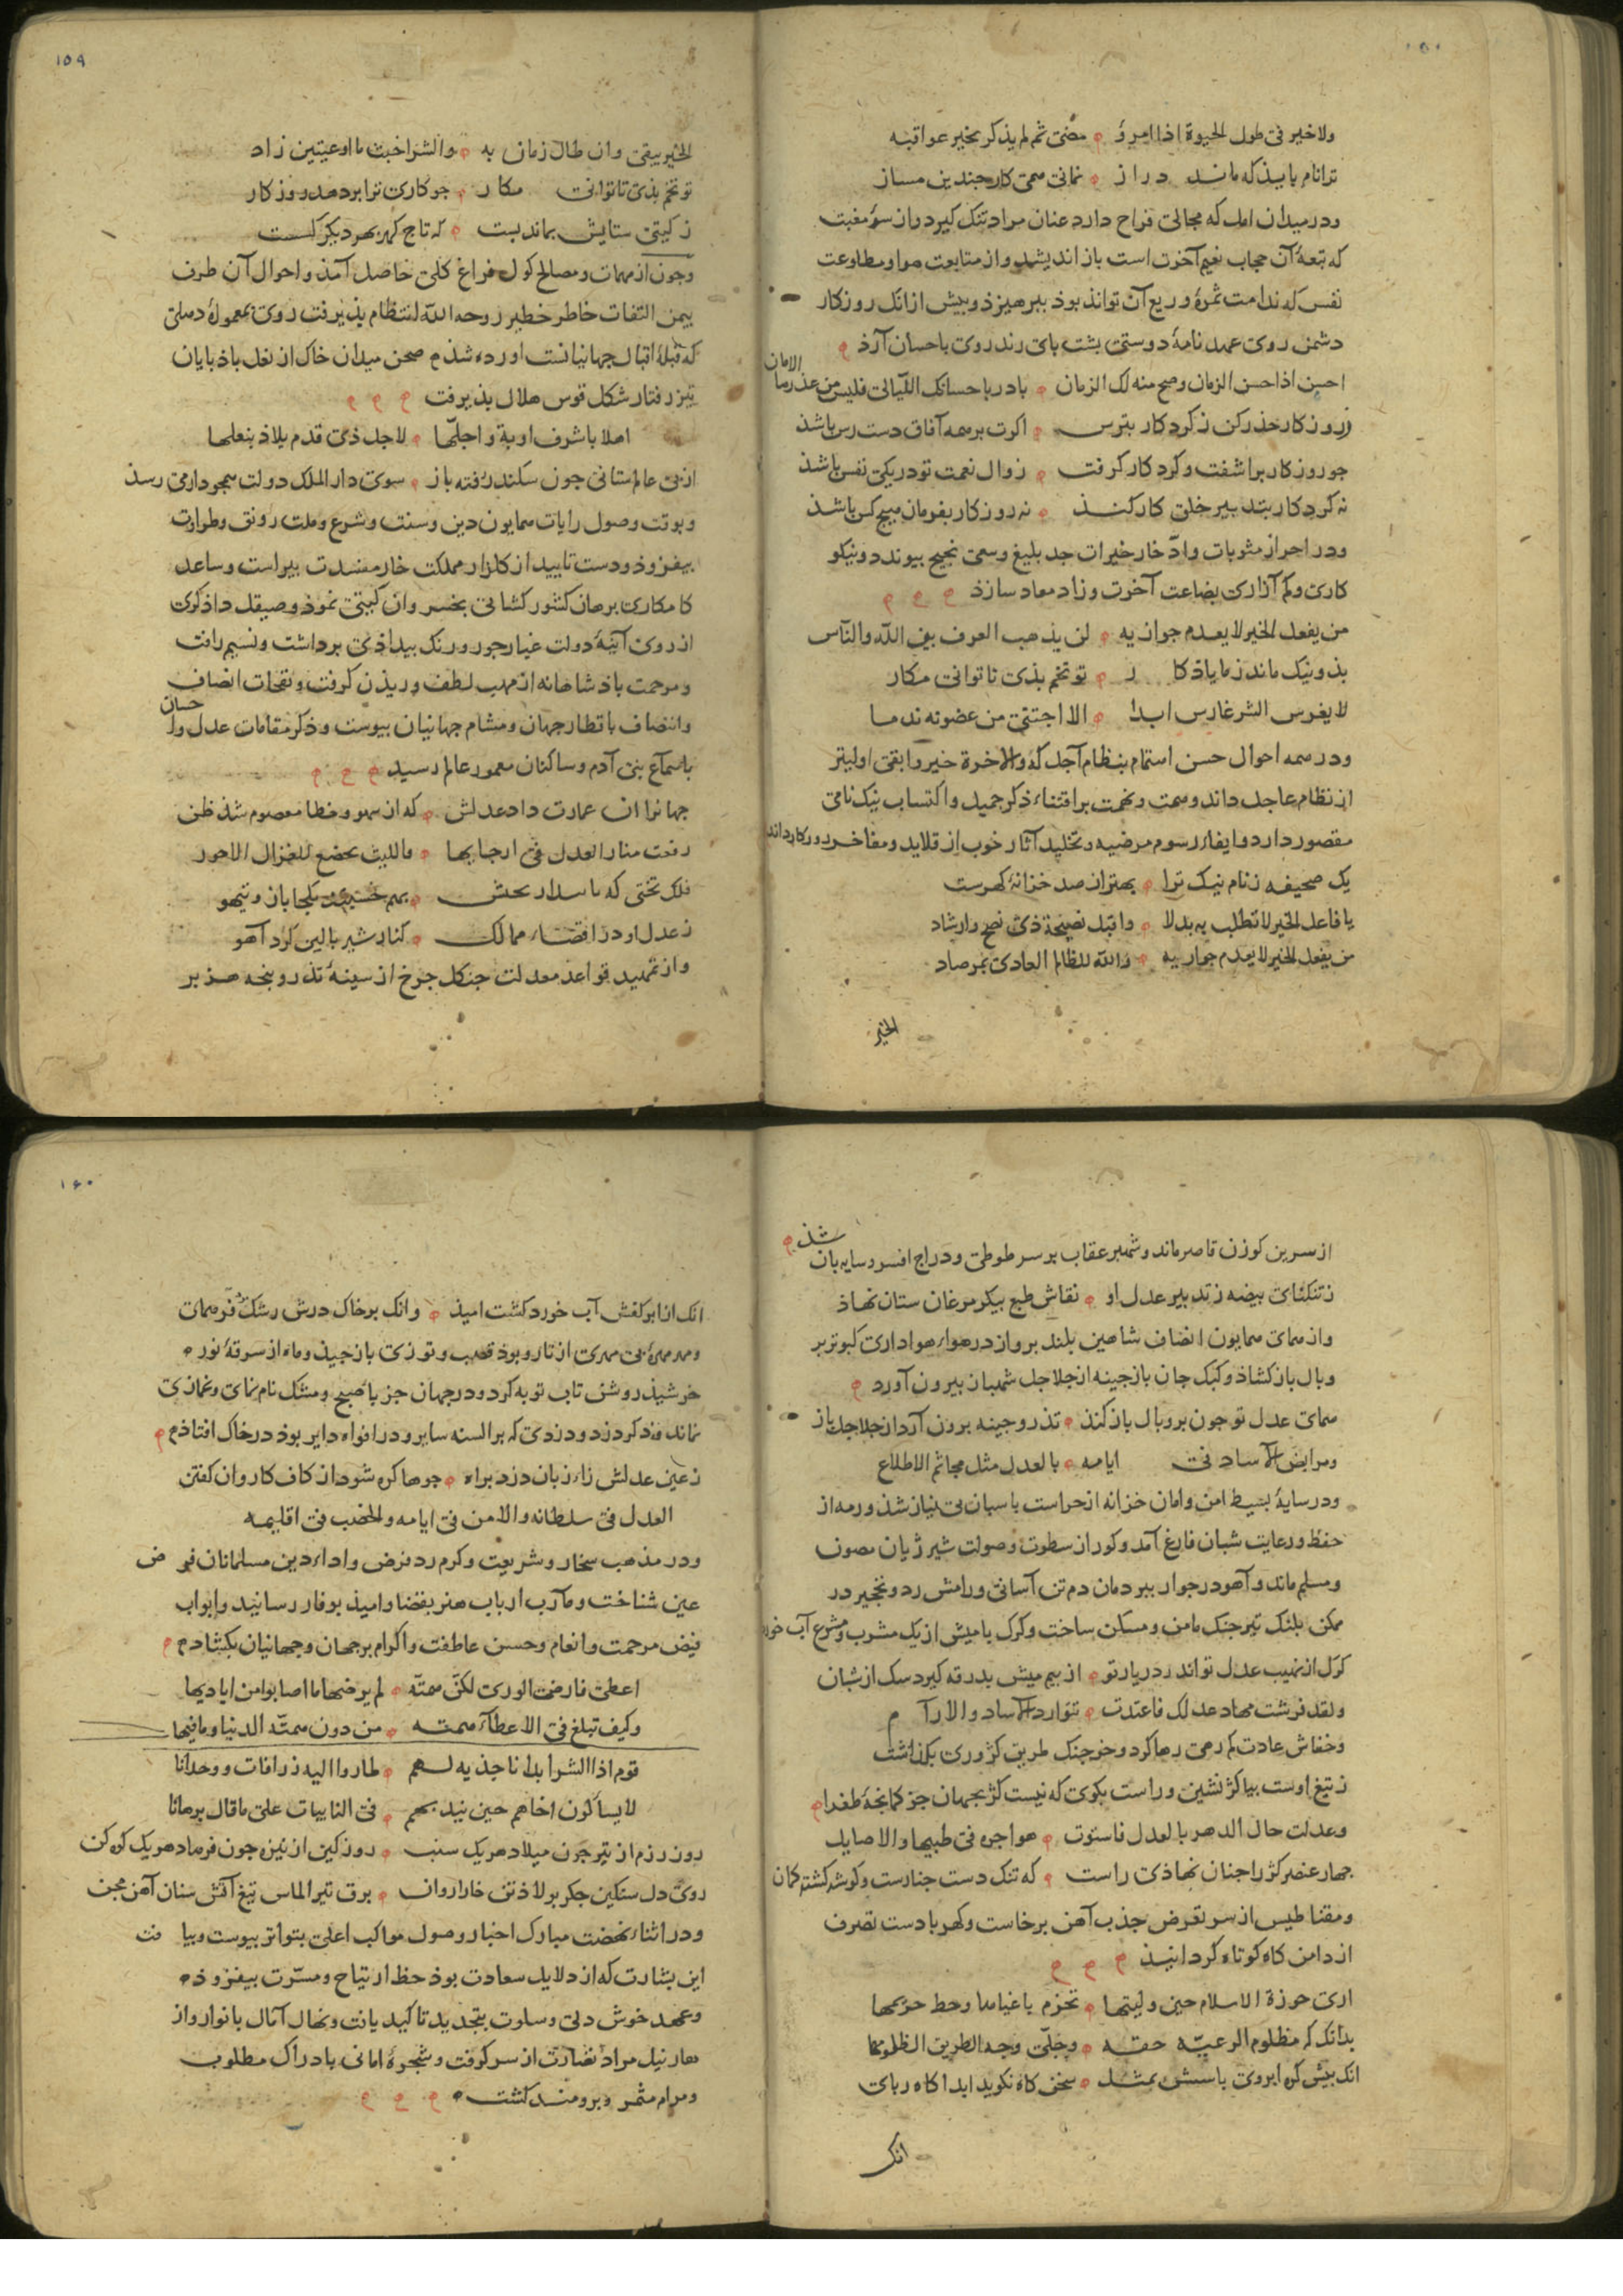 ولا خیر فی طول الحیوة اذا امرؤ مضی ثم لم یذکر بخیر عواقبه
ترا نام باید که ماند دراز نمانی همی کار چندین مساز
ودر میدان امل که مجالی فراخ دارد عنان مراد تنک کیرد واز سوء مغبت
که تبعهٔ آن حجاب نعیم آخرت است باز اندیشد واز متابعت هوا ومطاوعت
نفس که ندامت ثمرهٔ وریع آن تواند بوذ ببرهیزذ وبیش ازانک روزکار
دشمن روی عهد نامهٔ دوستی بشت بای زند روی باحسان آرذ
احسن اذا احسن الزمان وصح منه لک الزمان بادر باحسانک اللیالی فلیس من عذرها
الامان
ز روزکار حذر کن ز کردکار بترس اکرت بر همه آفاق دست رس باشذ
جو روزکار براشفت وکردکار کرفت زوال نعمت تو در یکی نفس باشذ
نه کردکار بتدبیر خلق کار کنذ نه روزکار بفرمان هیچ کس باشذ
ودر احراز مثوبات وادّخار خیرات جد بلیغ وسعی نجیح بیوندد ونیکو
کاری وکم آزاری بضاعت آخرت وزاد معاد سازذ
من یفعل الخیر لا یعدم جوازیه لن یذهب العرف بین الله والناس
بذ ونیک ماند ز ما یاذکار تو تخم بذی تا توانی مکار
لا یغرس الشر غارس ابدا الا اجتنی من غصونه ندما
ودر همه احوال حسن اهتمام بنظام آجل که والاخرة خیر وابقی اولیتر
از نظام عاجل داند وهمت ونهمت بر اقتناء ذکر جمیل واکتساب نیک نامی
مقصور دارد وابقاء رسوم مرضیه وتخلید آثار خوب از قلاید ومفاخر روزکار داند
یک صحیفه ز نام نیک ترا بهتر از صد خزانهٔ کهرست
یا فاعل الخیر لا تطلب به بدلا واقبل نصیحة ذی نصح وارشاد
من یفعل الخیر لا یعدم جوازیه والله للظالم العادی بمرصاد
الخیر
١٥٩
الخیر یبقی وان طال زمان به والشر اخبث ما اوعیت من زاد
تو تخم بذی تا توانی مکار جو کاری ترا بر دهد روزکار
ز کیتی ستایش بماند بست که تاج کهر بهر دیکر کست
وجون از مهمات ومصالح کول فراغ کلی حاصل آمذ واحوال آن طرف
بیمن التفات خاطر خطیر روحه الله انتظام بذیرفت روی بمعمورهٔ دهلی
که قبلهٔ اقبال جهانیانست اورده شذ صحن میدان خاک از نعل باذ بایان
تیز رفتار شکل قوس هلال بذیرفت
اهلا باشرف اوبة واجلها لاجل ذی قدم یلاذ بنعلها
از بی عالم ستانی جون سکندر رفته باز سوی دار الملک دولت همجو دارا می رسذ
وبوقت وصول رایات همایون دین وسنت وشرع وملت رونق وطراوت
بیفزوذ ودست تایید از کلزار مملکت خار مفسدت بیراست وساعد
کامکاری برهان کشور کشائی بخسروان کیتی نموذ وصیقل داذکری
از روی آینهٔ دولت غبار جور ورنک بیداذی برداشت ونسیم رافت
ومرحمت باذشاهانه از مهب لطف وزیذن کرفت ونفحات انصاف
وانتصاف باقطار جهان ومشام جهانیان بیوست وذکر مقامات عدل واحسان
باسماع بنی آدم وساکنان معمور عالم رسید
جهانرا ان عمارت داد عدلش که از سهو وخطا معصوم شذ ظن
رفعت منار العدل فی ارجایها فاللیث یخضع للغزال الاحور
ز عدل او در اقصاء ممالک کنار شیر بالین کرد آهو
واز تمهید قواعد معدلت جنکل جرخ از سینهٔ تذرو وبنجه هزبر
از سرین کوزن قاصر ماند وشهبر عقاب بر سر طوطی ودراج افسر وسایه بان شذ
ز تنکنای بیضه ز تدبیر عدل او نقاش طبع بیکر مرغان ستان نهاذ
واز همای همایون انصاف شاهین بلند برواز در هواء هواداری کبوتر بر
وبال باز کشاذ وکبک جان باز جینه از جلاجل شهباز بیرون آورد
همای عدل تو جون بر وبال باز کنذ تذرو جینه برون آرد از جلاجل باز
ومرابض الآساد فی ایامه بالعدل مثل مجاثم الاطلاع
ودر سایهٔ بسیط امن وامان خزانه از حراست باسبان بی نیاز شذ ورمه از
حفظ ورعایت شبان فارغ آمد وکور از سطوت وصولت شیر ژیان مصون
ومسلم ماند وآهو در جوار ببر دمان دم تن آسانی ورامش زد ونخجیر در
ممکن بلنک تیز جنک مامن ومسکن ساخت وکرک با میش از یک مشرب ومشرع آب خورد
کرک از نهیب عدل تواند ر دیار تو از بیم میش بدرقه کیرد سک از شبان
ولقد فرشت مهاد عدلک فاغتدت تتوارد الآساد والارآم
وخفاش عادت کم رهی رها کرد وخرجنک طریق کژروی بکذاشت
ز تیغ اوست بیا کژ نشین وراست بکوی که نیست کژ بجهان جز کمانجهٔ طغرا
وعدلت حال الدهر بالعدل فاستوت هواجره فی طیبها والاصایل
جهار عنصر کژ را جنان نهاذی راست که تنک دست جنارست وکوشه کشته کمان
ومقناطیس از سر تعرض جذب آهن برخاست وکهربا دست تصرف
از دامن کاه کوتاه کردانیذ
اری حوزة الاسلام حین ولیتها تحزم باغیاها وحط حریمها
بدانک کم مظلوم الرعیّه حقه وجلّی وجه الطریق الظلومها
انک بیش کره ابروی باسش بمثل سخن کاه نکوید ابدا کاه ربای
انک
١٦٠
انک از ابر کفش آب خورد کشت امیذ وانک بر خاک درش رشک برد فر همای
ومه مهرهٔ بی مهری از تار وبوذ قصب وتوزی باز جیذ وماه از سرقهٔ نور
خرشیذ روشن تاب توبه کرد ودر جهان جز با صبح ومشک نام نمای وغمازی
نماند وذکر دزد ودزدی که بر السنه سایر ودر افواه دایر بوذ در خاک افتاذ
ز عین عدلش زاء زبان دزد براه جو ها کره شود از کاف کاروان کفتن
العدل فی سلطانه والامن فی ایامه والخصب فی اقلیمه
ودر مذهب سخا وشریعت وکرم رد فرض واداء دین مسلمانان فرض
عین شناخت ومآرب ارباب هنر بقضا وامیذ بوفا رسانید وابواب
فیض مرحمت وانعام وحسن عاطفت واکرام بر جهان وجهانیان بکشاد
اعطی فارضی الوری لکن همته لم یرضها ما اصابوا من ایادیها
وکیف تبلغ فی الاعطآء همته من دون همته الدنیا وما فیها
قوم اذا الشر ابدا ناجذیه لهم طاروا الیه زرافات ووحدانا
لا یسألون اخاهم حین یندبهم فی النایبات علی ما قال برهانا
روز رزم از تیر جون میلاد هر یک سنب روز کین از نیزه جون فرهاد هر یک کوه کن
روی دل سنکین جکر بولاذ تن خارا روان برق تیر الماس تیغ آتش سنان آهن مجن
ودر اثناء نهضت مبارک اخبار وصول مواکب اعلی بتواتر بیوست وبیافت
این بشارت که از دلایل سعادت بوذ حظ ارتیاح ومسرّت بیفزوذ
وعهد خوش دلی وسلوت بتجدید تاکید یافت ونهال آمال بانوار واز
هار نیل مراد نضارت از سر کرفت وشجرهٔ امانی بادراک مطلوب
ومرام مثمر وبرومند کشت